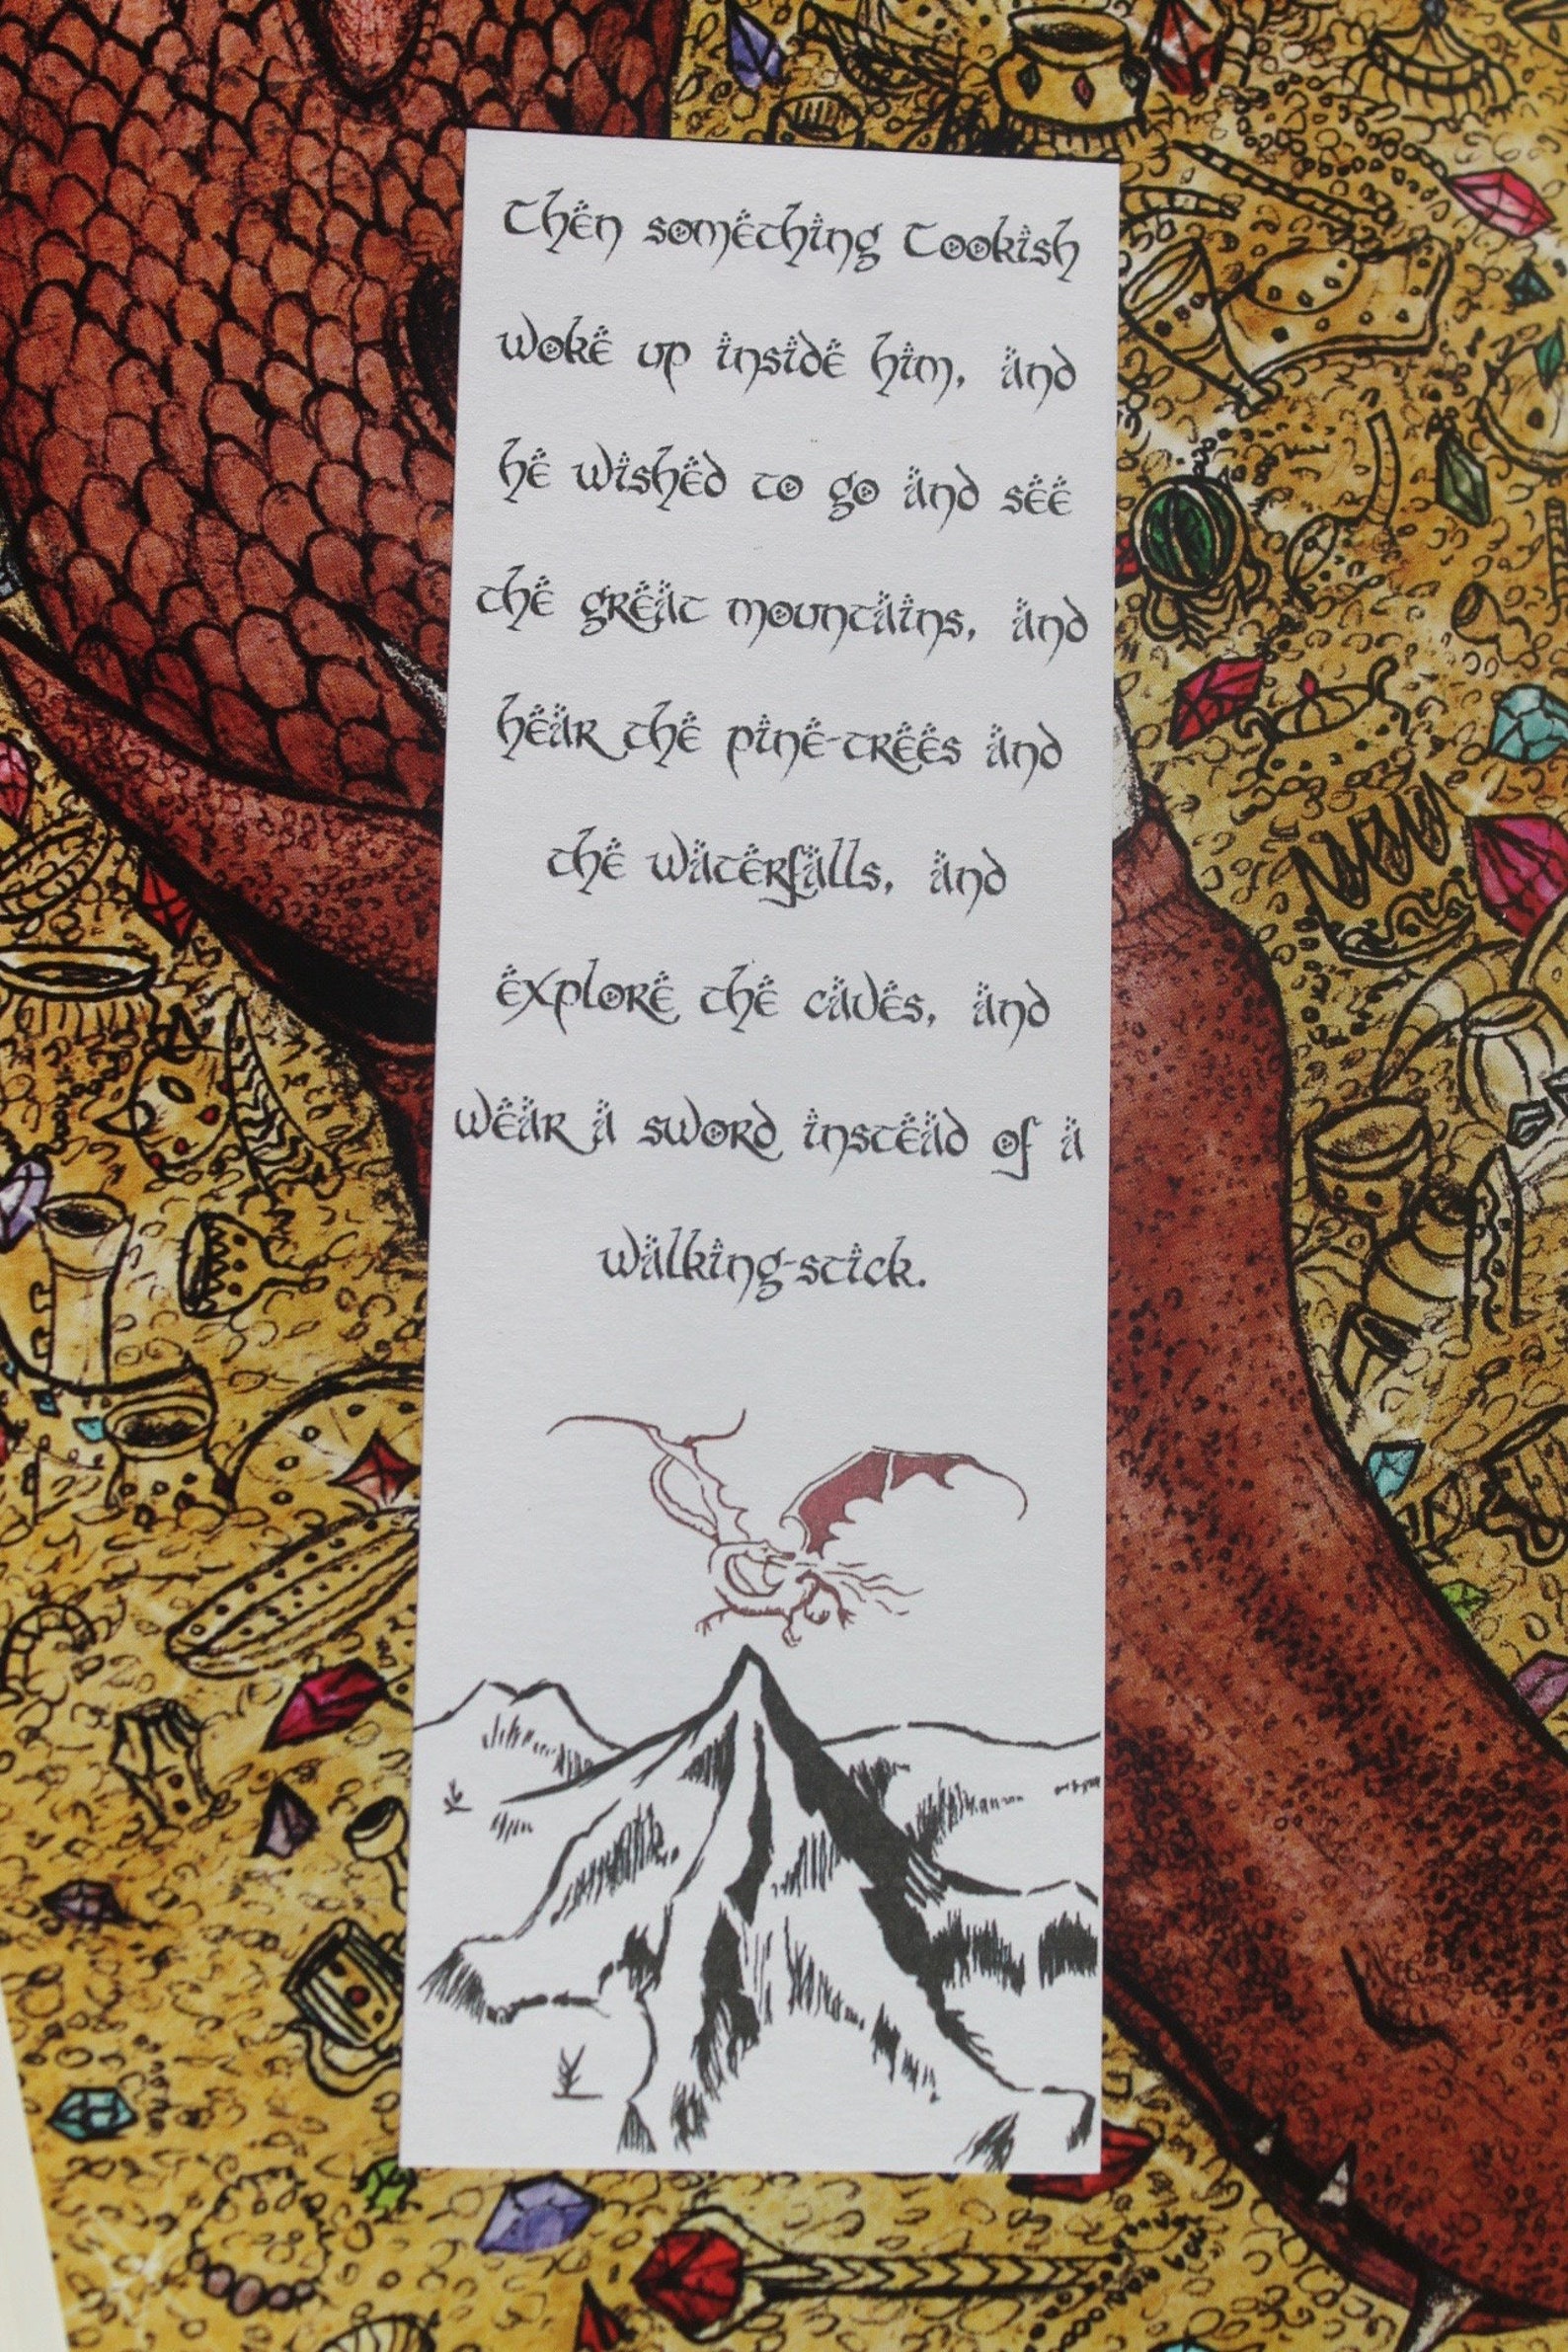 Then something Tookish
woke up inside him, and
he wished to go and see
the great mountains, and
hear the pine-trees and
the waterfalls, and
explore the caves, and
wear a sword instead of a
walking-stick.